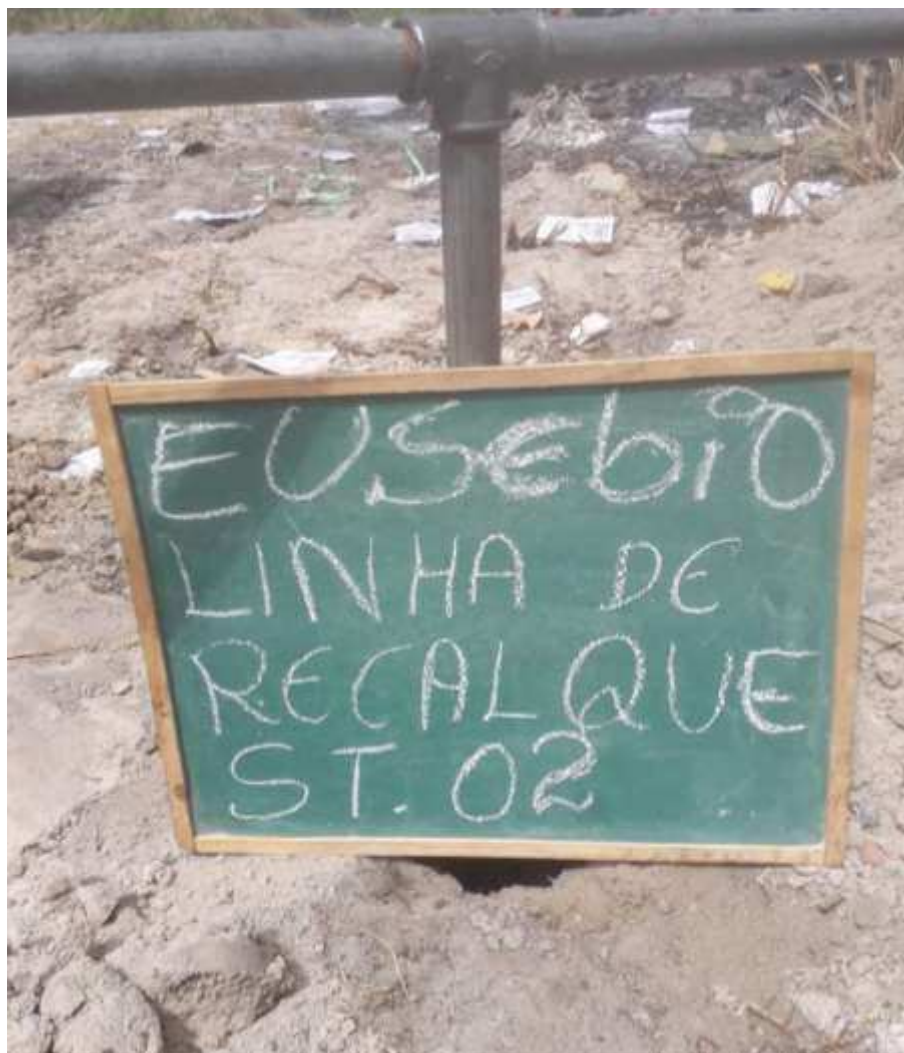 EUSEBIO
LINHA DE
RECALQUE
ST. 02